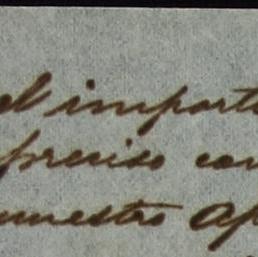 el import
preciso con
nuestro ap